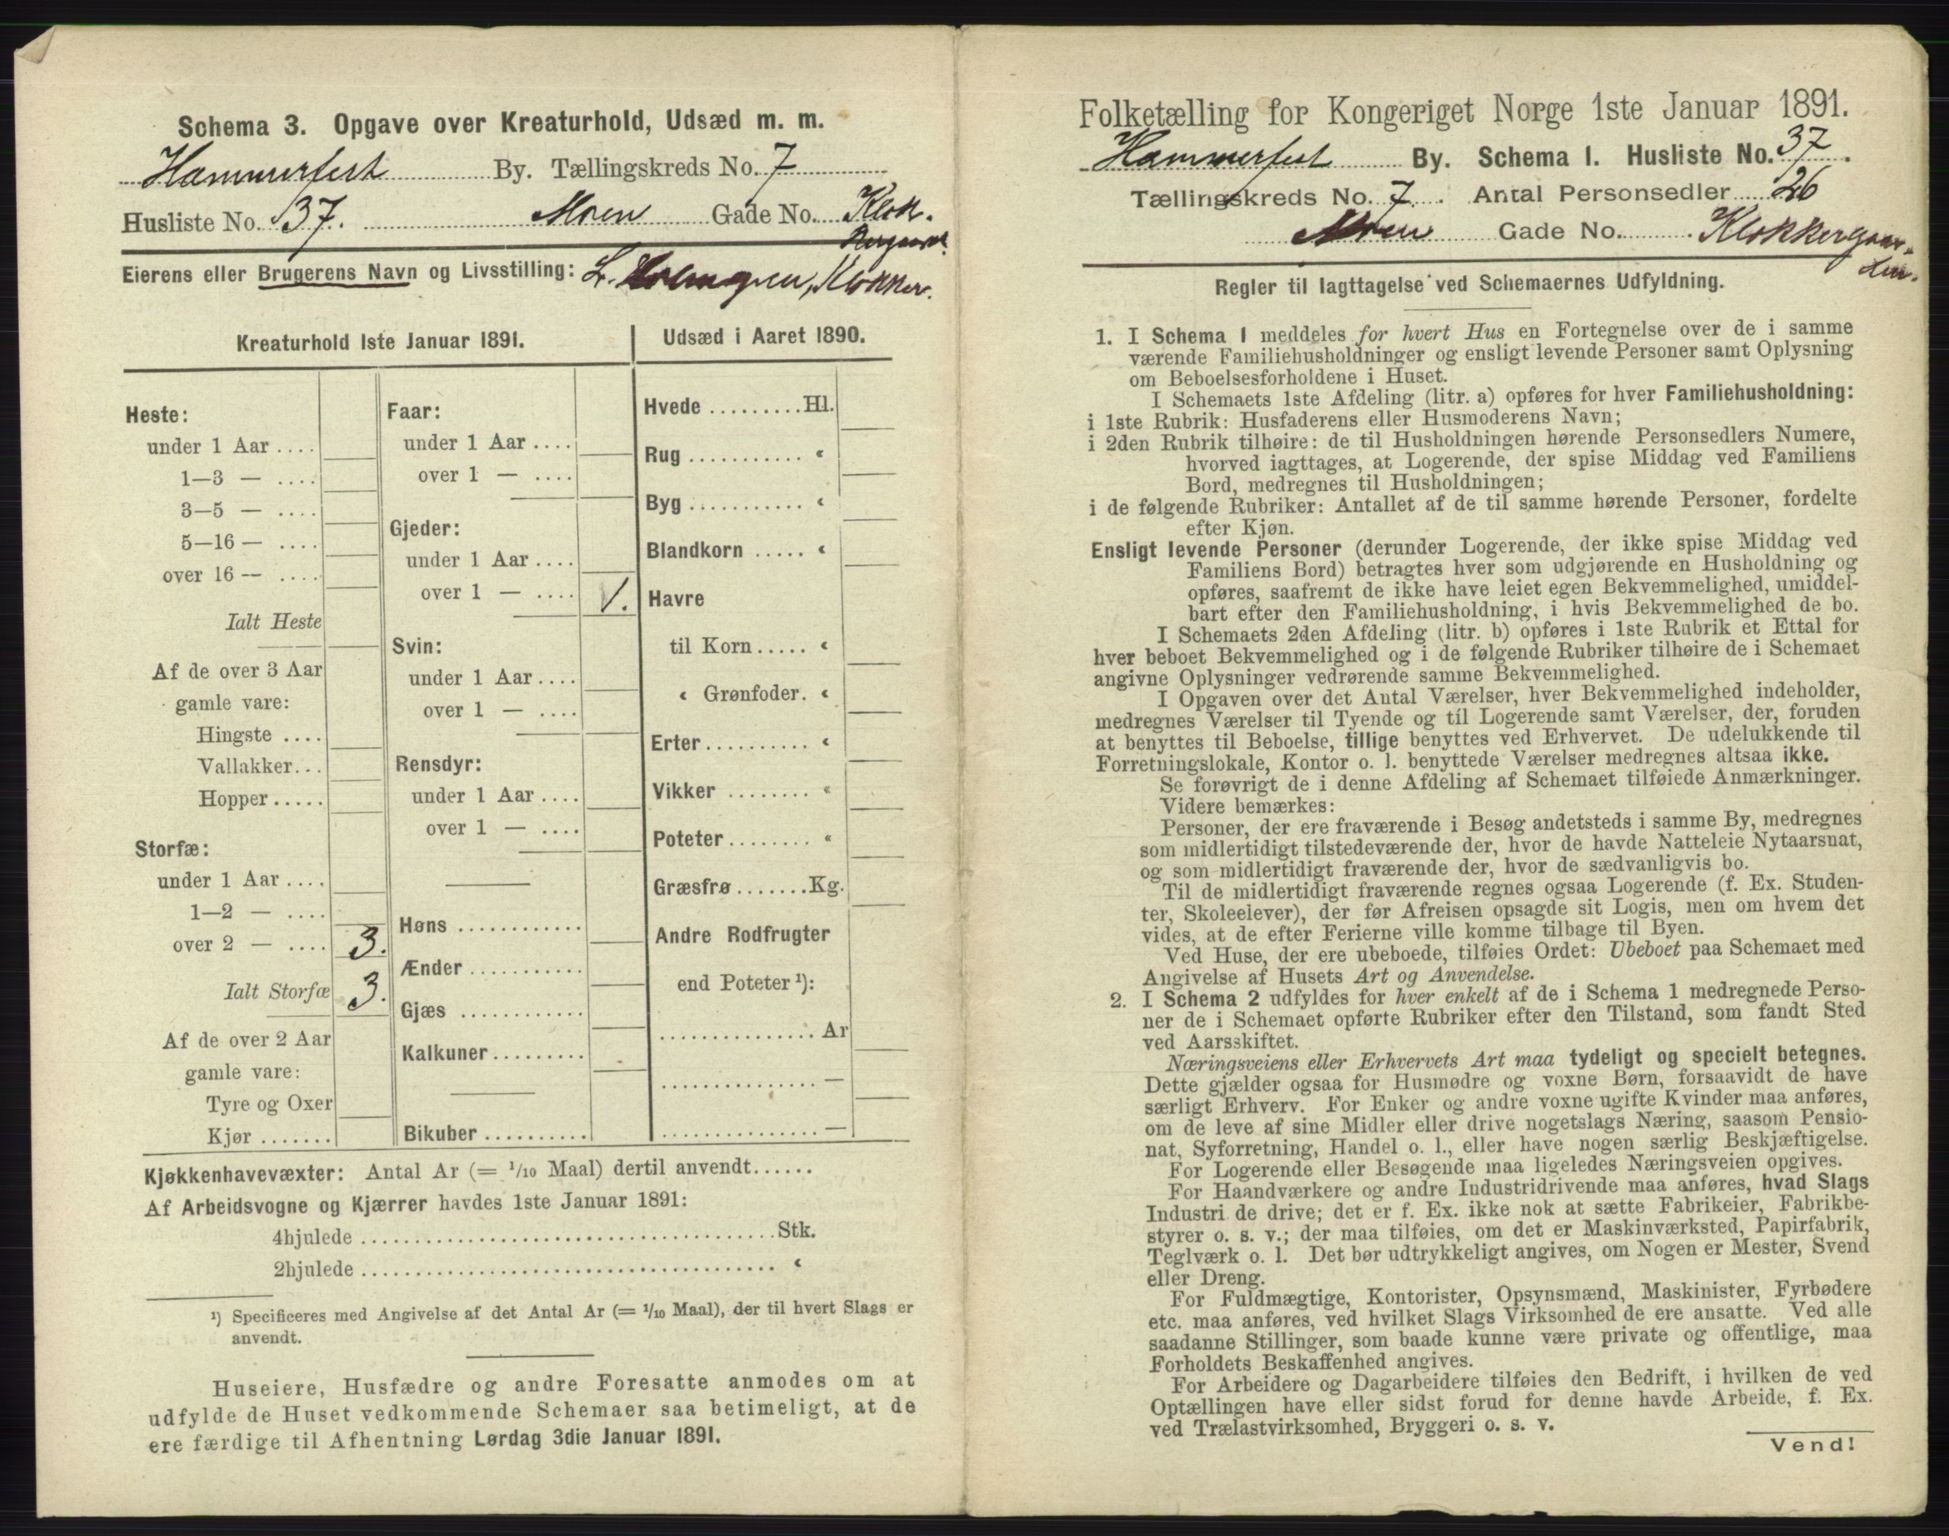 Schema 3. Opgave over Kreaturhold, Udsæd m. m.
Hammerfest By. Tællingskreds No. 7
Husliste No. 37. Moren Gade No. Klok-
kergaard.
Eierens eller Brugerens Navn og Livsstilling: L. Holmgren, Klokker.
Kreaturhold 1ste Januar 1891.
Heste:
under 1 Aar ....
1—3 — ....
3—5 — ....
5—16 — ....
over 16 — ....
Ialt Heste
Af de over 3 Aar
gamle vare:
Hingste ....
Vallakker...
Hopper.....
Storfæ:
under 1 Aar....
1—2 — ....
over 2 — .... 3.
Ialt Storfæ 3.
Af de over 2 Aar
gamle vare:
Tyre og Oxer
Kjør .......
Faar:
under 1 Aar ....
over 1 — ....
Gjeder:
under 1 Aar....
over 1 — .... 1.
Svin:
under 1 Aar....
over 1 — ....
Rensdyr:
under 1 Aar....
over 1 — ....
Høns ............
Ænder ..........
Gjæs ...........
Kalkuner.........
Bikuber ..........
Udsæd i Aaret 1890.
Hvede .........Hl.
Rug ........... “
Byg ........... “
Blandkorn ..... “
Havre
til Korn ..... “
“ Grønfoder. “
Erter.......... “
Vikker ........ “
Poteter ........ “
Græsfrø.......Kg.
Andre Rodfrugter
end Poteter ¹):
............... Ar
............... —
............... —
Kjøkkenhavevæxter: Antal Ar (= 1/10 Maal) dertil anvendt......
Af Arbeidsvogne og Kjærrer havdes 1ste Januar 1891:
4hjulede ......................................Stk.
2hjulede ...................................... “
¹) Specificeres med Angivelse af det Antal Ar (= 1/10 Maal), der til hvert Slags er
anvendt.
Huseiere, Husfædre og andre Foresatte anmodes om at
udfylde de Huset vedkommende Schemaer saa betimeligt, at de
ere færdige til Afhentning Lørdag 3die Januar 1891.
Folketælling for Kongeriget Norge 1ste Januar 1891.
Hammerfest By. Schema 1. Husliste No. 37.
Tællingskreds No. 7. Antal Personsedler 26
Moren Gade No. Klokkergaar-
den.
Regler til Iagttagelse ved Schemaernes Udfyldning.
1. I Schema 1 meddeles for hvert Hus en Fortegnelse over de i samme
værende Familiehusholdninger og ensligt levende Personer samt Oplysning
om Beboelsesforholdene i Huset.
I Schemaets 1ste Afdeling (litr. a) opføres for hver Familiehusholdning:
i 1ste Rubrik: Husfaderens eller Husmoderens Navn;
i 2den Rubrik tilhøire: de til Husholdningen hørende Personsedlers Numere,
hvorved iagttages, at Logerende, der spise Middag ved Familiens
Bord, medregnes til Husholdningen;
i de følgende Rubriker: Antallet af de til samme hørende Personer, fordelte
efter Kjøn.
Ensligt levende Personer (derunder Logerende, der ikke spise Middag ved
Familiens Bord) betragtes hver som udgjørende en Husholdning og
opføres, saafremt de ikke have leiet egen Bekvemmelighed, umiddel-
bart efter den Familiehusholdning, i hvis Bekvemmelighed de bo.
I Schemaets 2den Afdeling (litr. b) opføres i 1ste Rubrik et Ettal for
hver beboet Bekvemmelighed og i de følgende Rubriker tilhøire de i Schemaet
angivne Oplysninger vedrørende samme Bekvemmelighed.
I Opgaven over det Antal Værelser, hver Bekvemmelighed indeholder,
medregnes Værelser til Tyende og til Logerende samt Værelser, der, foruden
at benyttes til Beboelse, tillige benyttes ved Erhvervet. De udelukkende til
Forretningslokale, Kontor o. l. benyttede Værelser medregnes altsaa ikke.
Se forøvrigt de i denne Afdeling af Schemaet tilføiede Anmærkninger.
Videre bemærkes:
Personer, der ere fraværende i Besøg andetsteds i samme By, medregnes
som midlertidigt tilstedeværende der, hvor de havde Natteleie Nytaarsnat,
og som midlertidigt fraværende der, hvor de sædvanligvis bo.
Til de midlertidigt fraværende regnes ogsaa Logerende (f. Ex. Studen-
ter, Skoleelever), der før Afreisen opsagde sit Logis, men om hvem det
vides, at de efter Ferierne ville komme tilbage til Byen.
Ved Huse, der ere ubeboede, tilføies Ordet: Ubeboet paa Schemaet med
Angivelse af Husets Art og Anvendelse.
2. I Schema 2 udfyldes for hver enkelt af de i Schema 1 medregnede Perso-
ner de i Schemaet opførte Rubriker efter den Tilstand, som fandt Sted
ved Aarsskiftet.
Næringsveiens eller Erhvervets Art maa tydeligt og specielt betegnes.
Dette gjælder ogsaa for Husmødre og voxne Børn, forsaavidt de have
særligt Erhverv. For Enker og andre voxne ugifte Kvinder maa anføres,
om de leve af sine Midler eller drive nogetslags Næring, saasom Pensio-
nat, Syforretning, Handel o. l., eller have nogen særlig Beskjæftigelse.
For Logerende eller Besøgende maa ligeledes Næringsveien opgives.
For Haandværkere og andre Industridrivende maa anføres, hvad Slags
Industri de drive; det er f. Ex. ikke nok at sætte Fabrikeier, Fabrikbe-
styrer o. s. v.; der maa tilføies, om det er Maskinværksted, Papirfabrik,
Teglværk o. l. Det bør udtrykkeligt angives, om Nogen er Mester, Svend
eller Dreng.
For Fuldmægtige, Kontorister, Opsynsmænd, Maskinister, Fyrbødere
etc. maa anføres, ved hvilket Slags Virksomhed de ere ansatte. Ved alle
saadanne Stillinger, som baade kunne være private og offentlige, maa
Forholdets Beskaffenhed angives.
For Arbeidere og Dagarbeidere tilføies den Bedrift, i hvilken de ved
Optællingen have eller sidst forud for denne havde Arbeide, f. Ex.
ved Trælastvirksomhed, Bryggeri o. s. v.
Vend!